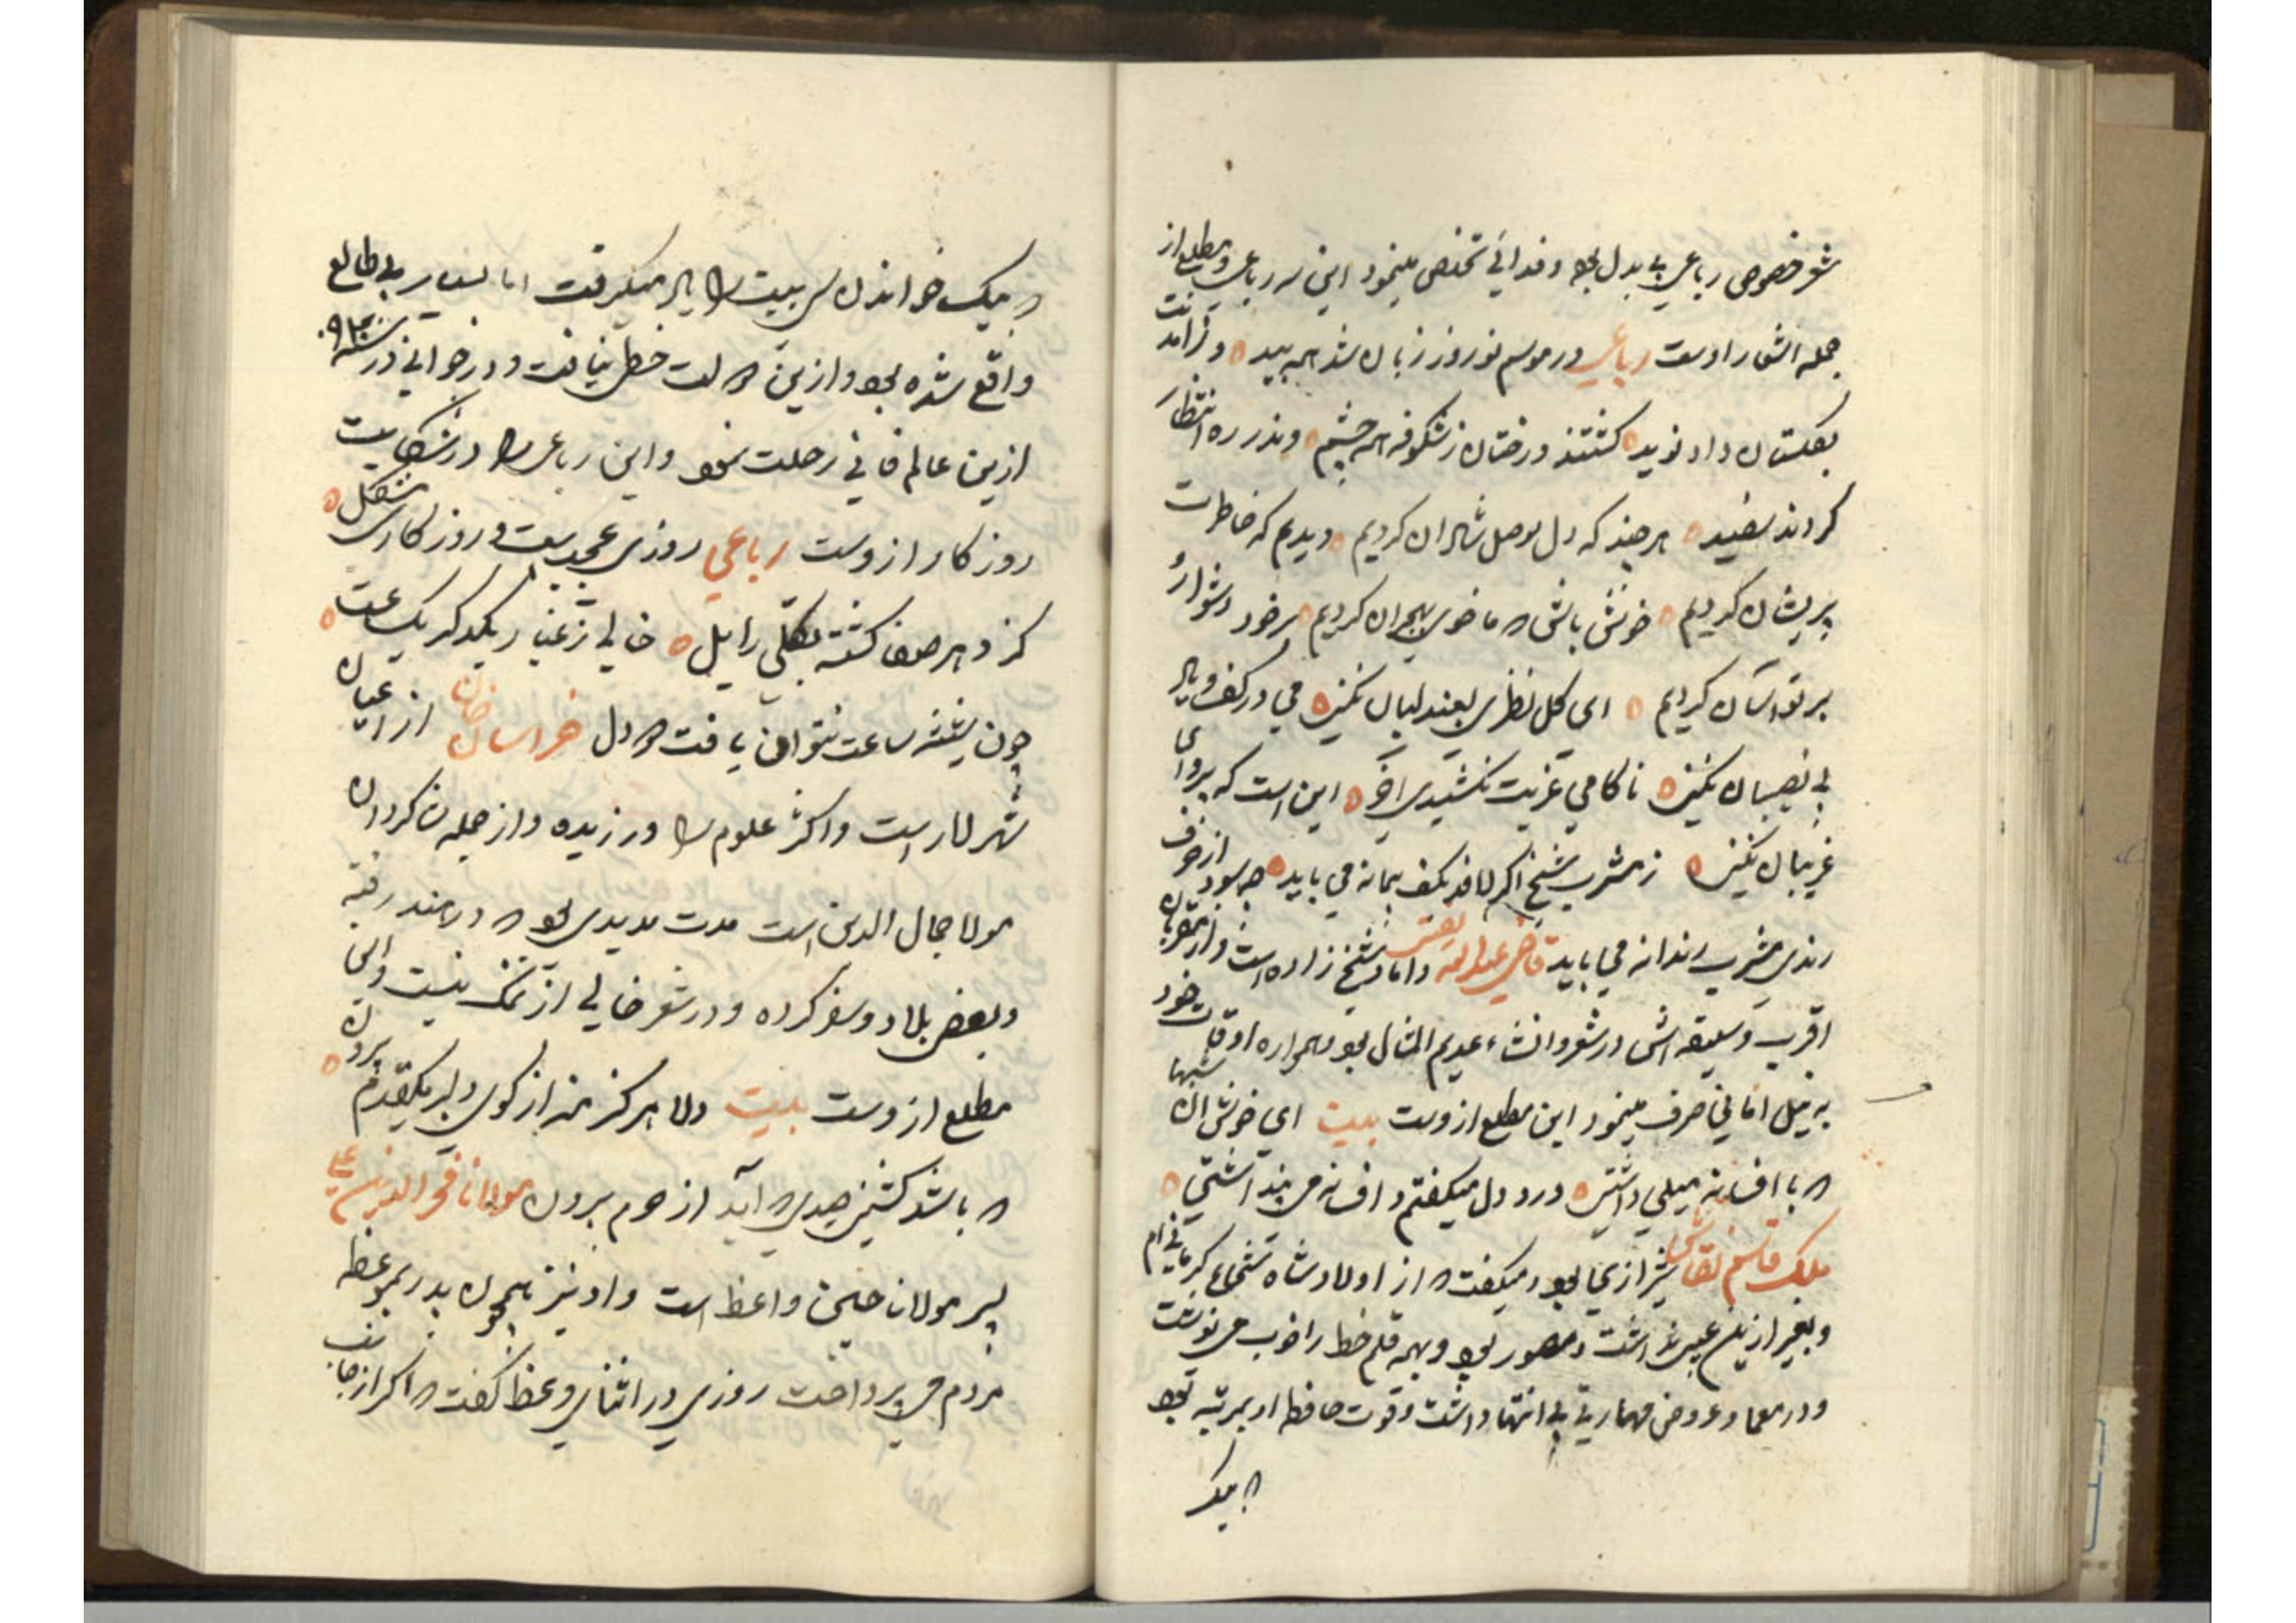 شعر خصوصی رباعی بی بدل بود و فدائی تخلص مینمود این سه رباعی و مطلع از
جمله اشعار اوست رباعی در موسم نوروز زبان شد همه بید و ز آمدنت
بگلستان داد نوید گشتند درختان ز شکوفه همه چشم وندر ره انتظار
کردند سفید هر چند که دل بوصل شادان کردیم دیدیم که خاطرت
پریشان کردیم خوش باش که ما خوی بهجران کردیم بر خود دشوار
بر تو آسان کردیم ای گل نظری بعندلیبان نکنی می در کف و یاد
بی نصیبان نکنی ناکامی غربت نکشیدی آخر این است که پروای
غریبان نکنی ز مشرب شیخ اگر لافد بکف پیمانه می باید چه سود از حرف
رندی مشرب رندانه می باید قاضی عبدالله یقینی داماد شیخ زاده است و از مقربان
اقرب و سلیقه اش در شعر و انشاء عدیم المثال بود همواره اوقات خود
به نیل امانی صرف مینمود این مطلع ازوست بیت ای خوش آن شبها
که با افسانه میلی داشتی درد دل میگفتم و افسانه می پنداشتی
ملک قاسم نقاش شیرازی بود میگفت که از اولاد شاه شجاع کرمانی ام
و بغیر ازین عیبی نداشت و مصور بود و بهمه قلم خط را خوب می نوشت
و در معما و عروض مهارتی بی انتها داشت و قوت حافظه او بمرتبه بود
که بیک
که بیک خواندن سی بیت را یاد میگرفت اما بسیار بی طالع
واقع شده بود و ازین حالت حظی نیافت و در جوانی در سنه
ازین عالم فانی رحلت نمود و این رباعی را در شکایت
روزگار ازوست رباعی روزی عجیبست و روزگاری مشکل
کز دهر صفا گشته بکلی زایل خالی ز غبار یکدگر یک ساعت
چون شیشه ساعت نتوان یافت دو دل خراسان خان از اعیان
شهر لار است و اکثر علوم را ورزیده و از جمله شاگردان
مولا جمال الدین است مدت مدیدی بود که در هند رفته
و بعضی بلاد و سفر کرده و در شعر خالی از نمک نیست و این
مطلع ازوست بیت دلا هرگز منه از کوی دلبر یکقدم بیرون
که باشد کشتنی صیدی که آید از حرم بیرون مولانا فخر الدین علی
پسر مولانا حسین واعظ است و او نیز همچون پدر بموعظه
مردم می پرداخت روزی در اثنای وعظ گفت که اگر از جانب